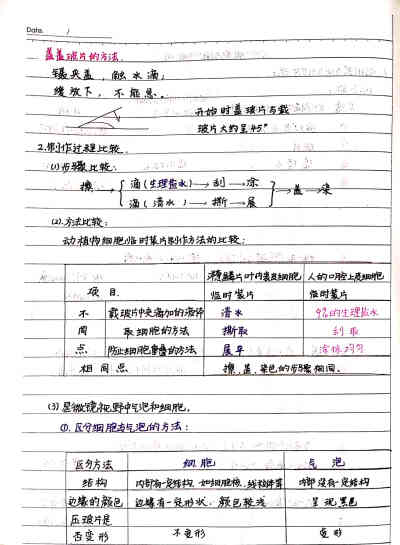 Date.
盖盖玻片的方法
镊夹盖，触水滴；
缓放下，不能急。
开始时盖玻片与载
玻片大约呈45°
2.制作过程比较.
(1)步骤比较：
擦→{滴(生理盐水)→刮→涂
滴(清水)→撕→展}→盖→染
(2).方法比较：
动植物细胞临时装片制作方法的比较：
项目. 洋葱鳞片叶内表皮细胞临时装片 人的口腔上皮细胞临时装片
不同点 载玻片中央滴加的液体 清水 9‰的生理盐水
取细胞的方法 撕取 刮取
防止细胞重叠的方法 展平 涂抹均匀
相同点 擦、盖、染色的步骤相同。
(3)显微镜视野中气泡和细胞。
①.区分细胞与气泡的方法：
区分方法 细胞 气泡
结构 内部有一定结构，如细胞核、线粒体等 内部没有一定结构
边缘的颜色 边缘有一定形状，颜色较浅 呈现黑色
压玻片是否变形 不变形 变形